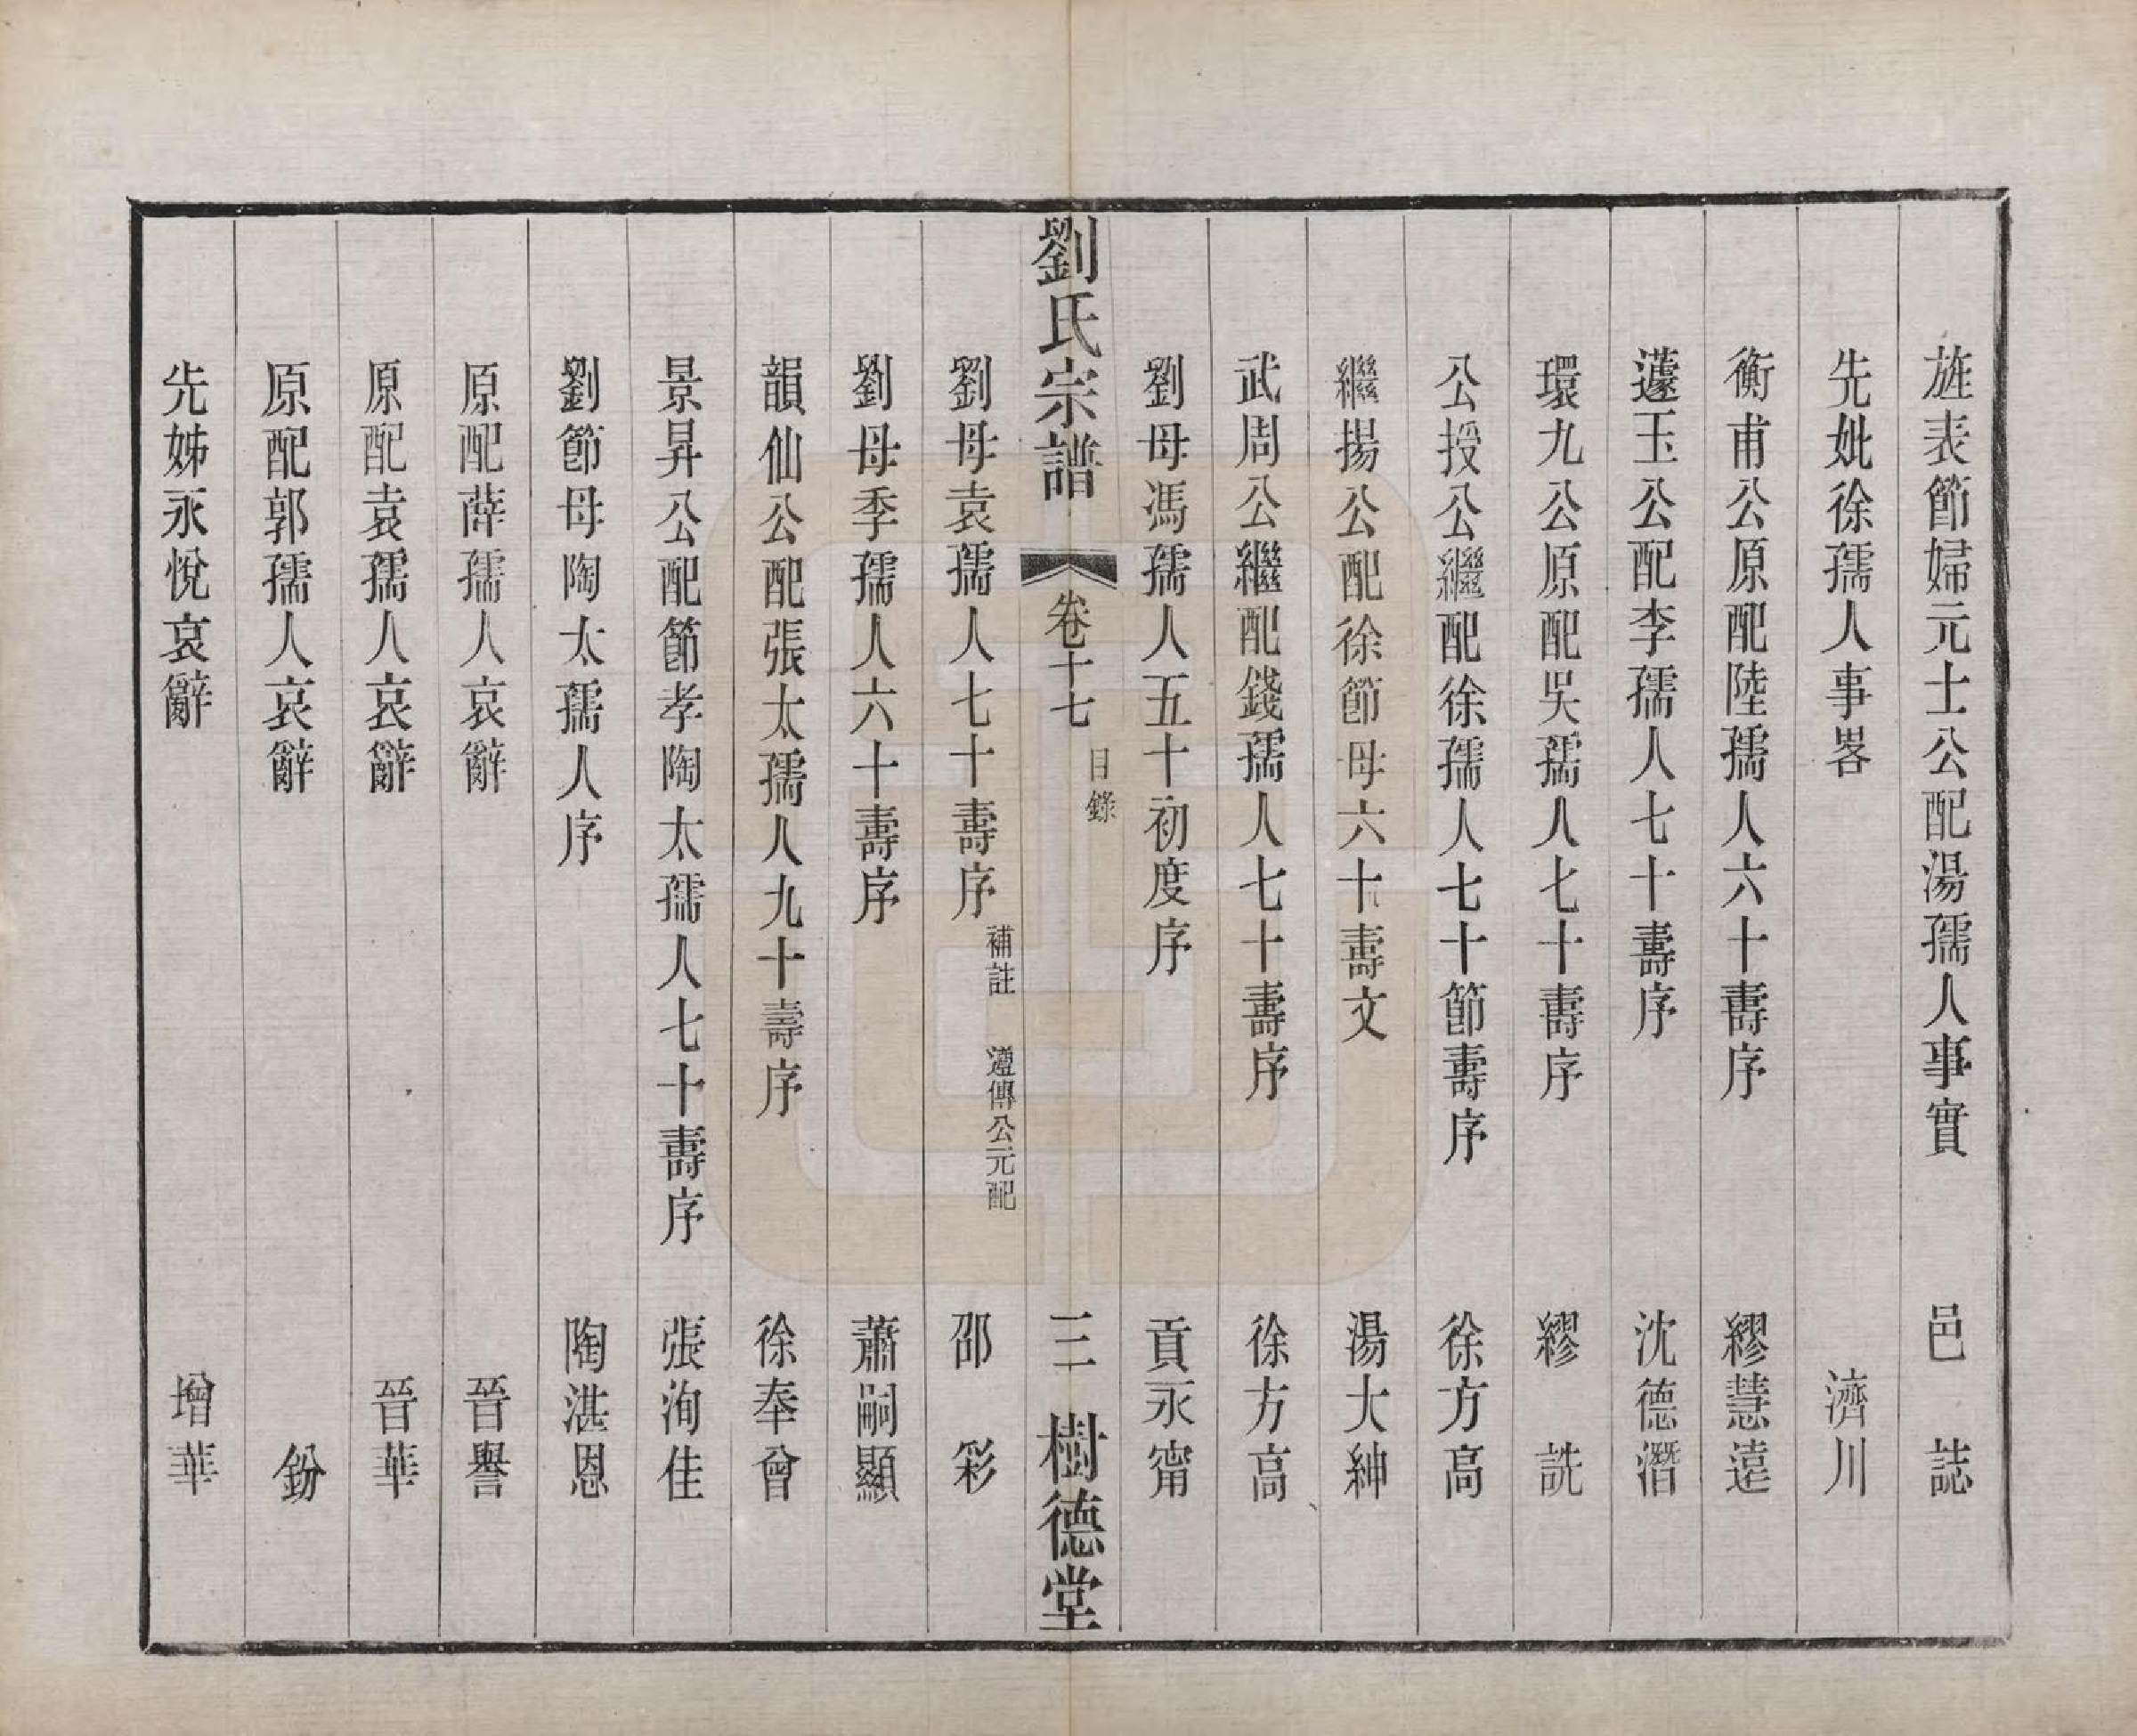 旌表節婦元士公配湯孺人事實 邑 誌
先妣徐孺人事畧 濟川
衡甫公原配陸孺人六十壽序 繆慧遠
蘧玉公配李孺人七十壽序 沈德潛
環九公原配吳孺人七十壽序 繆 詵
公授公繼配徐孺人七十節壽序 徐方高
繼揚公配徐節母六十壽文 湯大紳
武周公繼配錢孺人七十壽序 徐方高
劉母馮孺人五十初度序 貢永甯
劉氏宗譜 卷十七 目錄 三 樹德堂
劉母袁孺人七十壽序 補註 遵傳公元配 邵 彩
劉母季孺人六十壽序 蕭嗣顯
韻仙公配張太孺人九十壽序 徐奉曾
景昇公配節孝陶太孺人七十壽序 張洵佳
劉節母陶太孺人序 陶湛恩
原配薛孺人哀辭 晉譽
原配袁孺人哀辭 晉華
原配郭孺人哀辭 鈖
先姊永悅哀辭 增華